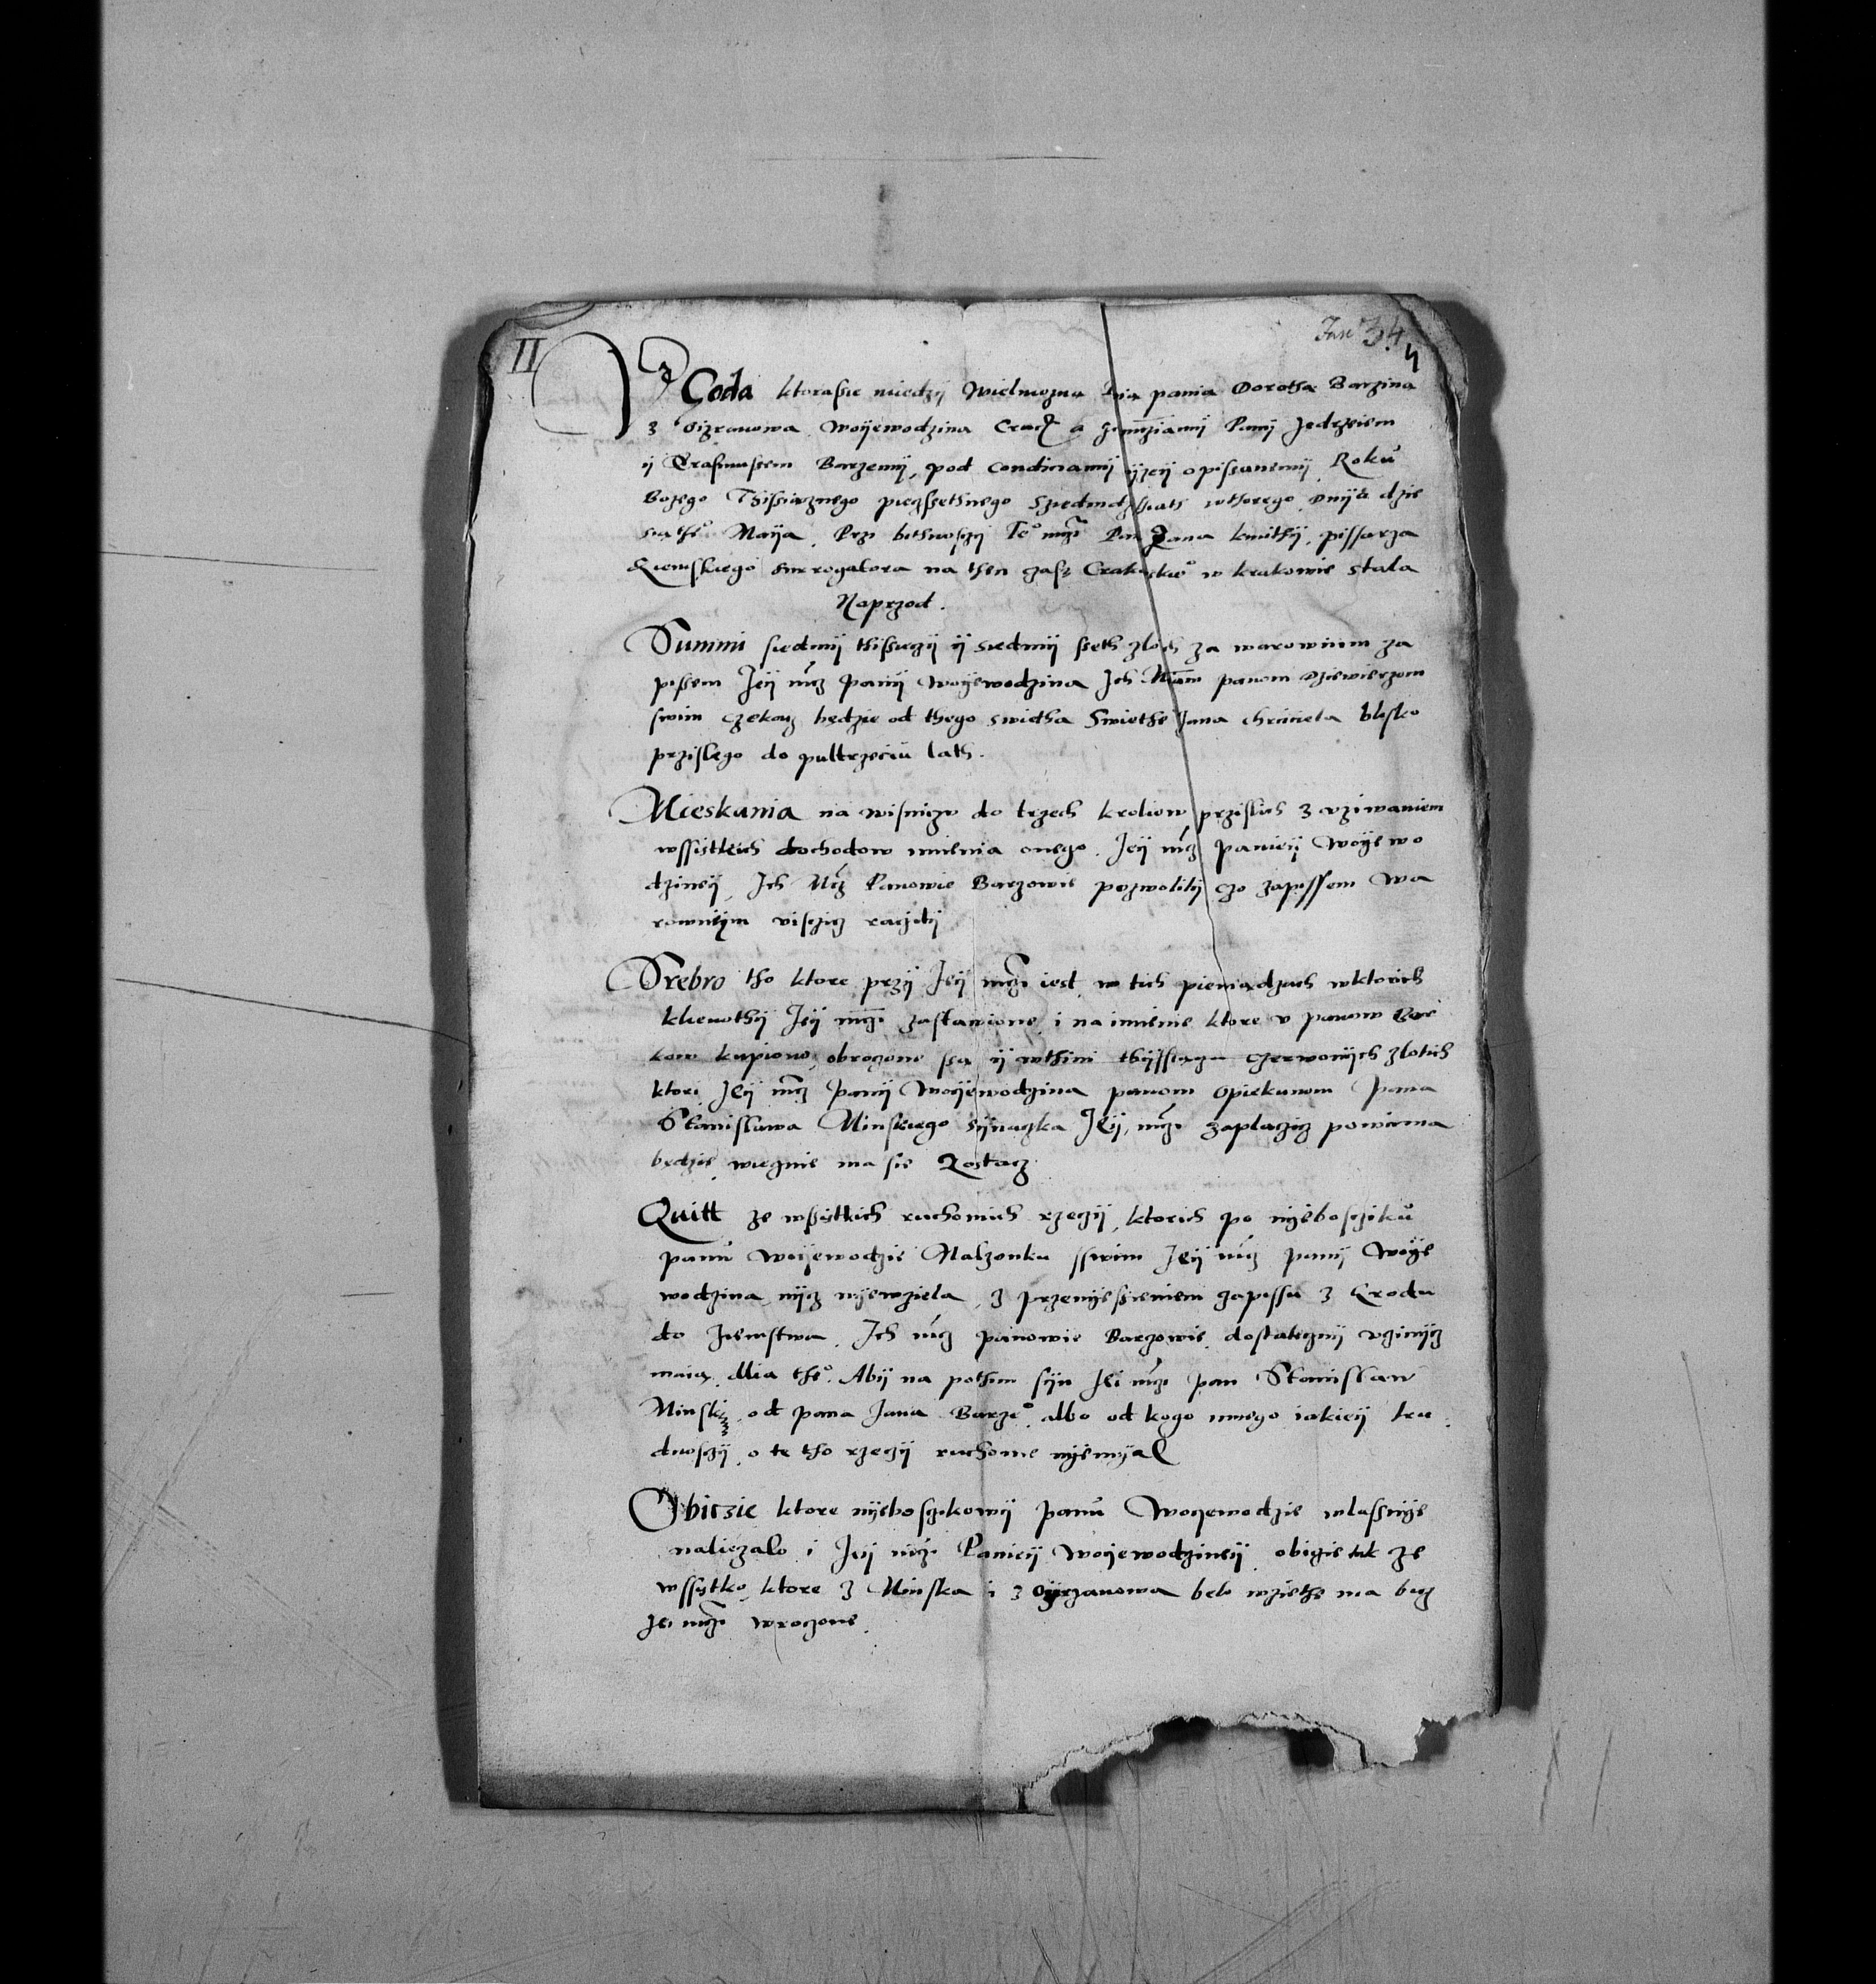 II
Fasc 34
4
ZGoda ktorasie miedzÿ Wielmozna Pia pania Dorotha Barzina
z Oizranowa Woÿewodzina Crac a Jmczianÿ Panÿ Jedrzeiem
ÿ Erasmusem Barzemÿ, pod condiciamÿ ÿzeÿ opissanemÿ, Roku
Bozego Thissiacznego pieczssethnego Sziedmdzssiath wthorego Dnÿa dzie
siathº Maÿa. Przi bithnosczÿ Teº mczi Pan Jana kmithÿ, pissarza
Ziemskiego surrogatora na then czasz Crakowskieº w krakowie stala
Naprzod.
Summi siedmÿ thissieczÿ ÿ siedmÿ sseth zloth za warownim za
pissem Jeÿ mcz Panÿ Woÿewodzina Ich Mciam panom Dziewierzom
swim czekacz będzie od thego swietha Swiethe Jana chrzciciela blisko
przislego do pultrzeciu lath.
Mieskania na wisniczu do trzech kroliow przislich z vziwaniem
wssistkich dochodow imienia onego. Jeÿ mcz panieÿ Woÿewo
dzineÿ, Ich Mcz Panowie Barzowie pozwolilÿ czo zapissem wa
rownÿm visczicz raczilÿ
Srebro tho ktore przÿ Jeÿ mczi iest w tich pieniadzach wktorich
klienothÿ Jeÿ mczi zastawione i na imienie ktore v panow Bar
kow kupiono, obroczone ssa ÿ wthim thÿssiacza czerwonÿch zlotich
ktori Jeÿ mcz Panÿ Woÿewodzina panom opiekunom pana
Stanislawa Minskiego sÿnaczka Jeÿ, mczi zaplaczicz powinna
będzie wiecznie ma sie zostacz
Quitt ze wssistkich ruchomich rzeczÿ, ktorich po nÿebosczikú
panú woÿewodzie Malzonku sswim Jeÿ mcz panÿ Woÿe
wodzina, nÿcz nÿewziela, z przenÿessieniem zapissu z Grodu
do Ziemstwa. Ich mcz panowie Barzowie dostatecznÿ vginÿcz
maia, dlia theº. Abÿ na pothim sÿn Jei mczi pan Stanislaw
Minski, od pana Jana Barzeº albo od kogo innego iakieÿ tru
dnosczÿ o te tho rzeczÿ ruchome nÿemÿal
Obiczie ktore nÿebosczikowÿ panú Woÿewodzie wlassnÿe
naliezalo i Jeÿ mczi Panieÿ Woÿewodzineÿ obigie tak ze
wssÿtko, ktore z Minska i z Oÿrzanowa belo wziethe ma bÿcz
Jei mczi wroczone.